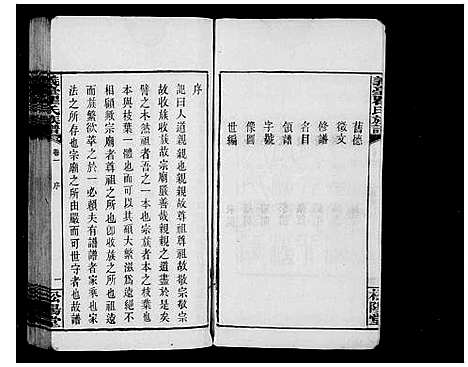 舊德
徵文
修譜
名目
領譜
字號
像圖
世編
松陽堂
序
記曰人道親親也親親故尊祖尊祖故敬宗敬宗
故收族收族故宗廟嚴善哉親親之道盡於是矣
譬之木然祖者吾之一本也宗族者本之枝葉也
本與枝葉一體而生也不以其碩大繁滋為遠絕不
相顧敬宗廟者尊祖之所也卽收族之所也祖遠
而族繁欲萃之於一必賴夫有譜譜者家乘也家
法之所存也宗廟之所由嚴而可世守者也故譜
卷一 序 一
松陽堂